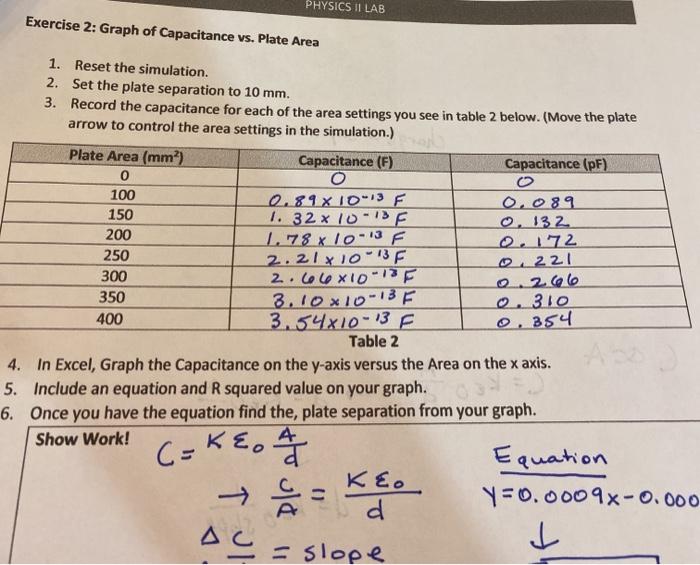 PHYSICS II LAB
Exercise 2: Graph of Capacitance vs. Plate Area
1. Reset the simulation.
2. Set the plate separation to 10 mm.
3. Record the capacitance for each of the area settings you see in table 2 below. (Move the plate
arrow to control the area settings in the simulation.)
Plate Area (mm²) Capacitance (F) Capacitance (pF)
0 0 0
100 0.89 x 10-13 F 0.089
150 1.32 x 10-13 F 0.132
200 1.78 x 10-13 F 0.172
250 2.21 x 10-13 F 0.221
300 2.66 x 10-13 F 0.266
350 3.10 x 10-13 F 0.310
400 3.54 x 10-13 F 0.354
Table 2
4. In Excel, Graph the Capacitance on the y-axis versus the Area on the x axis.
5. Include an equation and R squared value on your graph.
6. Once you have the equation find the, plate separation from your graph.
Show Work! C = Kε₀ A/d Equation
→ C/A = Kε₀/d y=0.0009x-0.000
ΔC = slope ↓